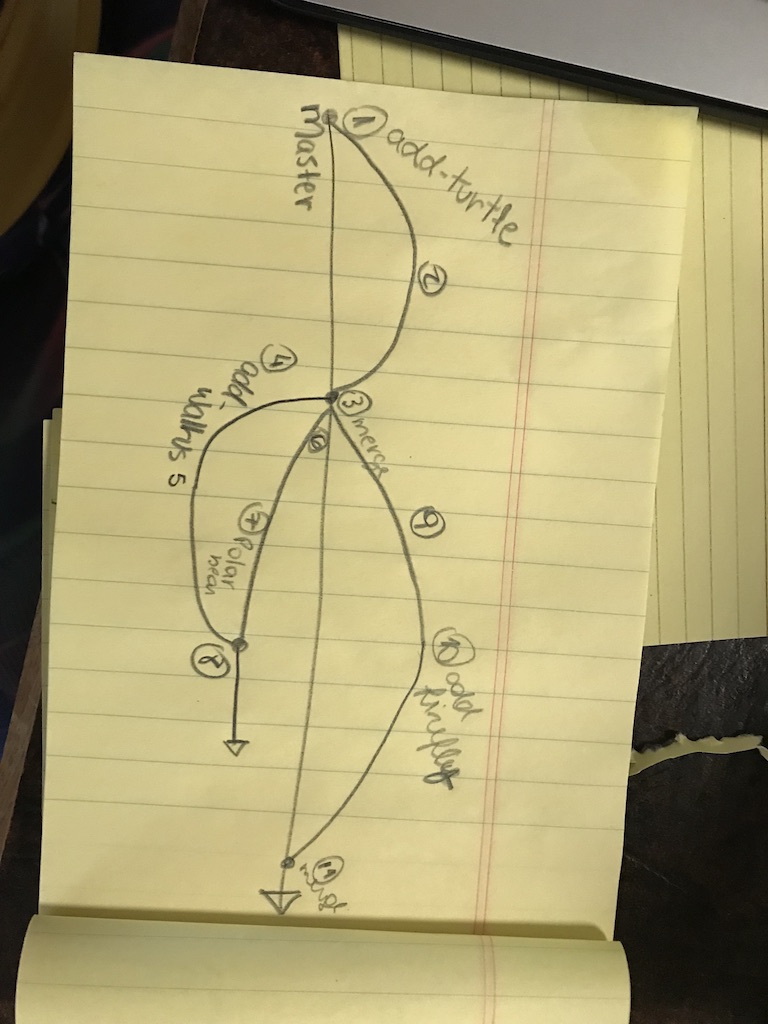 master
① add-turtle
②
③ merge
④ add-
walrus 5
⑥
⑦ Polar
bear
⑧
⑨
⑩ add
firefly
⑪